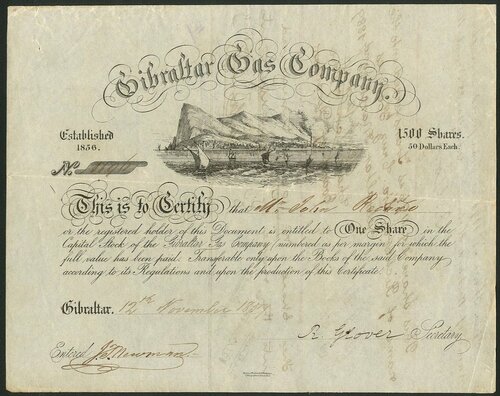 Gibraltar Gas Company.
Established 1856.
1500 Shares. 50 Dollars Each.
No.
This is to Certify that Mr John
or the registered holder of this Document is entitled to One Share in the
Capital Stock of the Gibraltar Gas Company numbered as per margin for which the
full value has been paid. Transferable only upon the Books of the said Company
according to its Regulations and upon the production of this Certificate.
Gibraltar. 12th November
R Glover Secretary
Entered